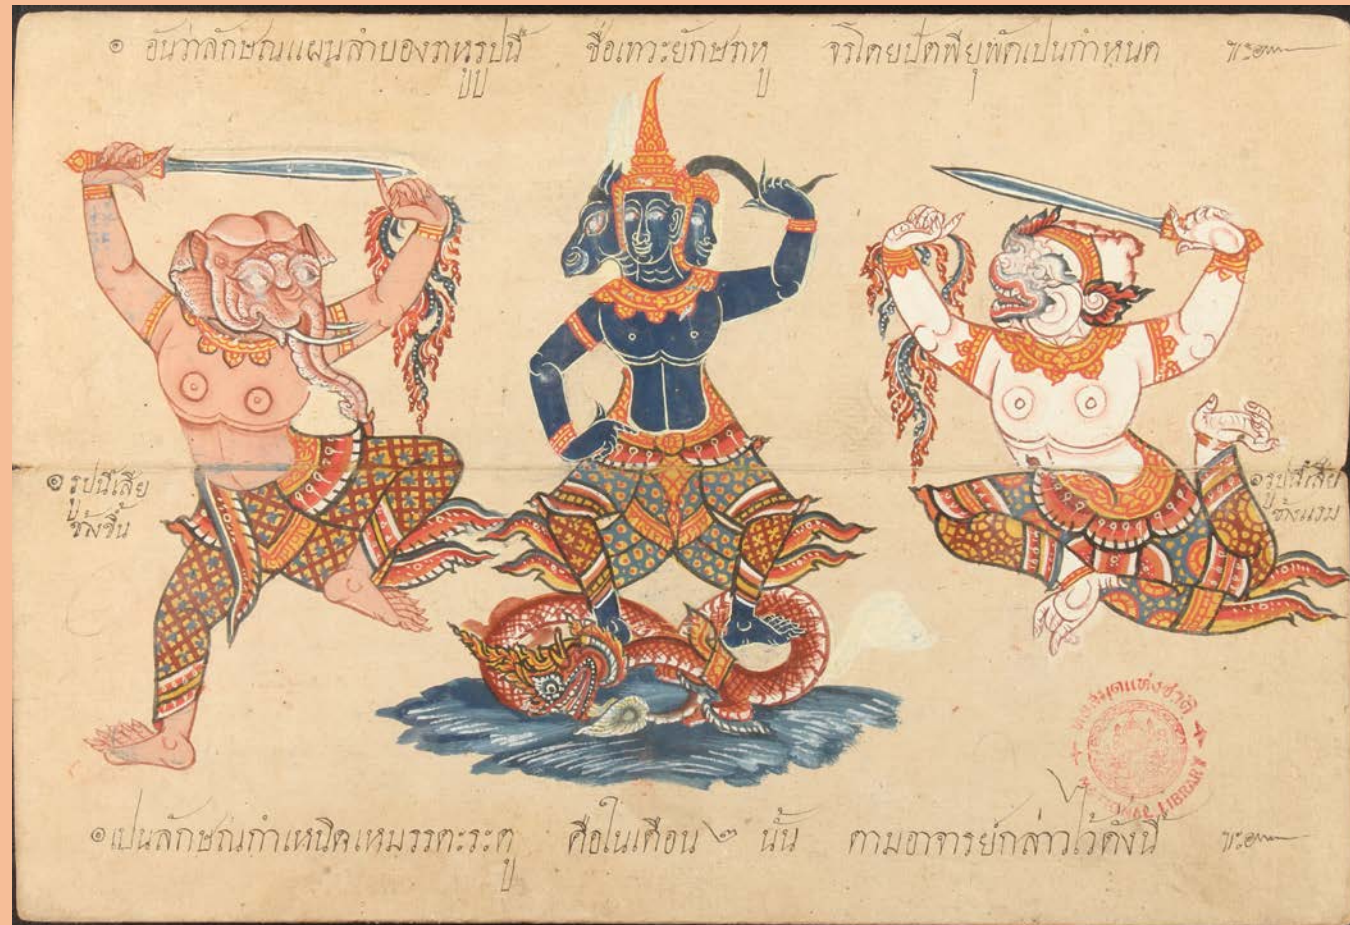 ๏ อันว่าลักษณแผนลำบองราหูรูปนี้ ชื่อเทวะยักษราหู จรโดยปัตพียุพัดเปนกำหนด
๏ รูปนี้เสีย
ข้างขึ้น
๏ รูปนี้เสีย
ข้างแรม
หอสมุดแห่งชาติ
NATIONAL LIBRARY
๏ เปนลักษณกำเหนิดเหมรรตะระดู คือในเดือน ๒ นั้น ตามอาจารย์กล่าวไว้ดังนี้